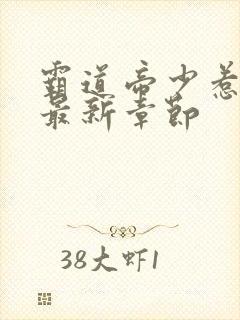 霸道帝少惹
最新章節
38大虾1